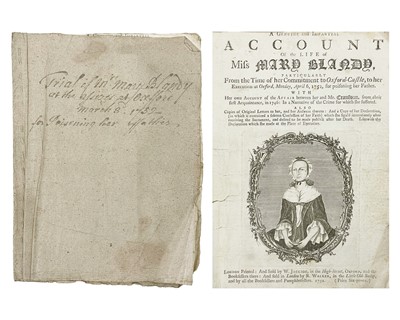 Trial of Mary Blandy
at the Assizes at Oxford
March 3. 1752
for Poisoning her Father
A GENUINE and IMPARTIAL
ACCOUNT
Of the LIFE of
Miss MARY BLANDY,
PARTICULARLY
From the Time of her Commitment to Oxford-Castle, to her
Execution at Oxford, Monday, April 6, 1752, for poisoning her Father.
WITH
Her own ACCOUNT of the AFFAIR between her and Mr. Cranstoun, from their
first Acquaintance, in 1746: In a Narrative of the Crime for which she suffered.
ALSO
Copies of Original Letters to her, and her Answers thereto: And a Copy of her Declaration,
the Sacrament, and desired to be made publick after her Death. Likewise the
Declaration which she made at the Place of Execution.
LONDON Printed: And Sold by W. JACKSON, in the High-street, OXFORD, and the
Booksellers there: And sold in London by R. WALKER, in the Little Old Bailey,
and by all the Booksellers and Pamphletsellers. 1752. (Price Six-pence.)